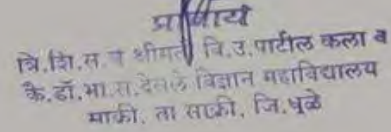 प्राचार्य
वि.शि.स. चे श्रीमती वि.उ.पाटील कला व
कै.डॉ.भा.स.देसले विज्ञान महाविद्यालय
साक्री, ता साक्री, जि.धुळे